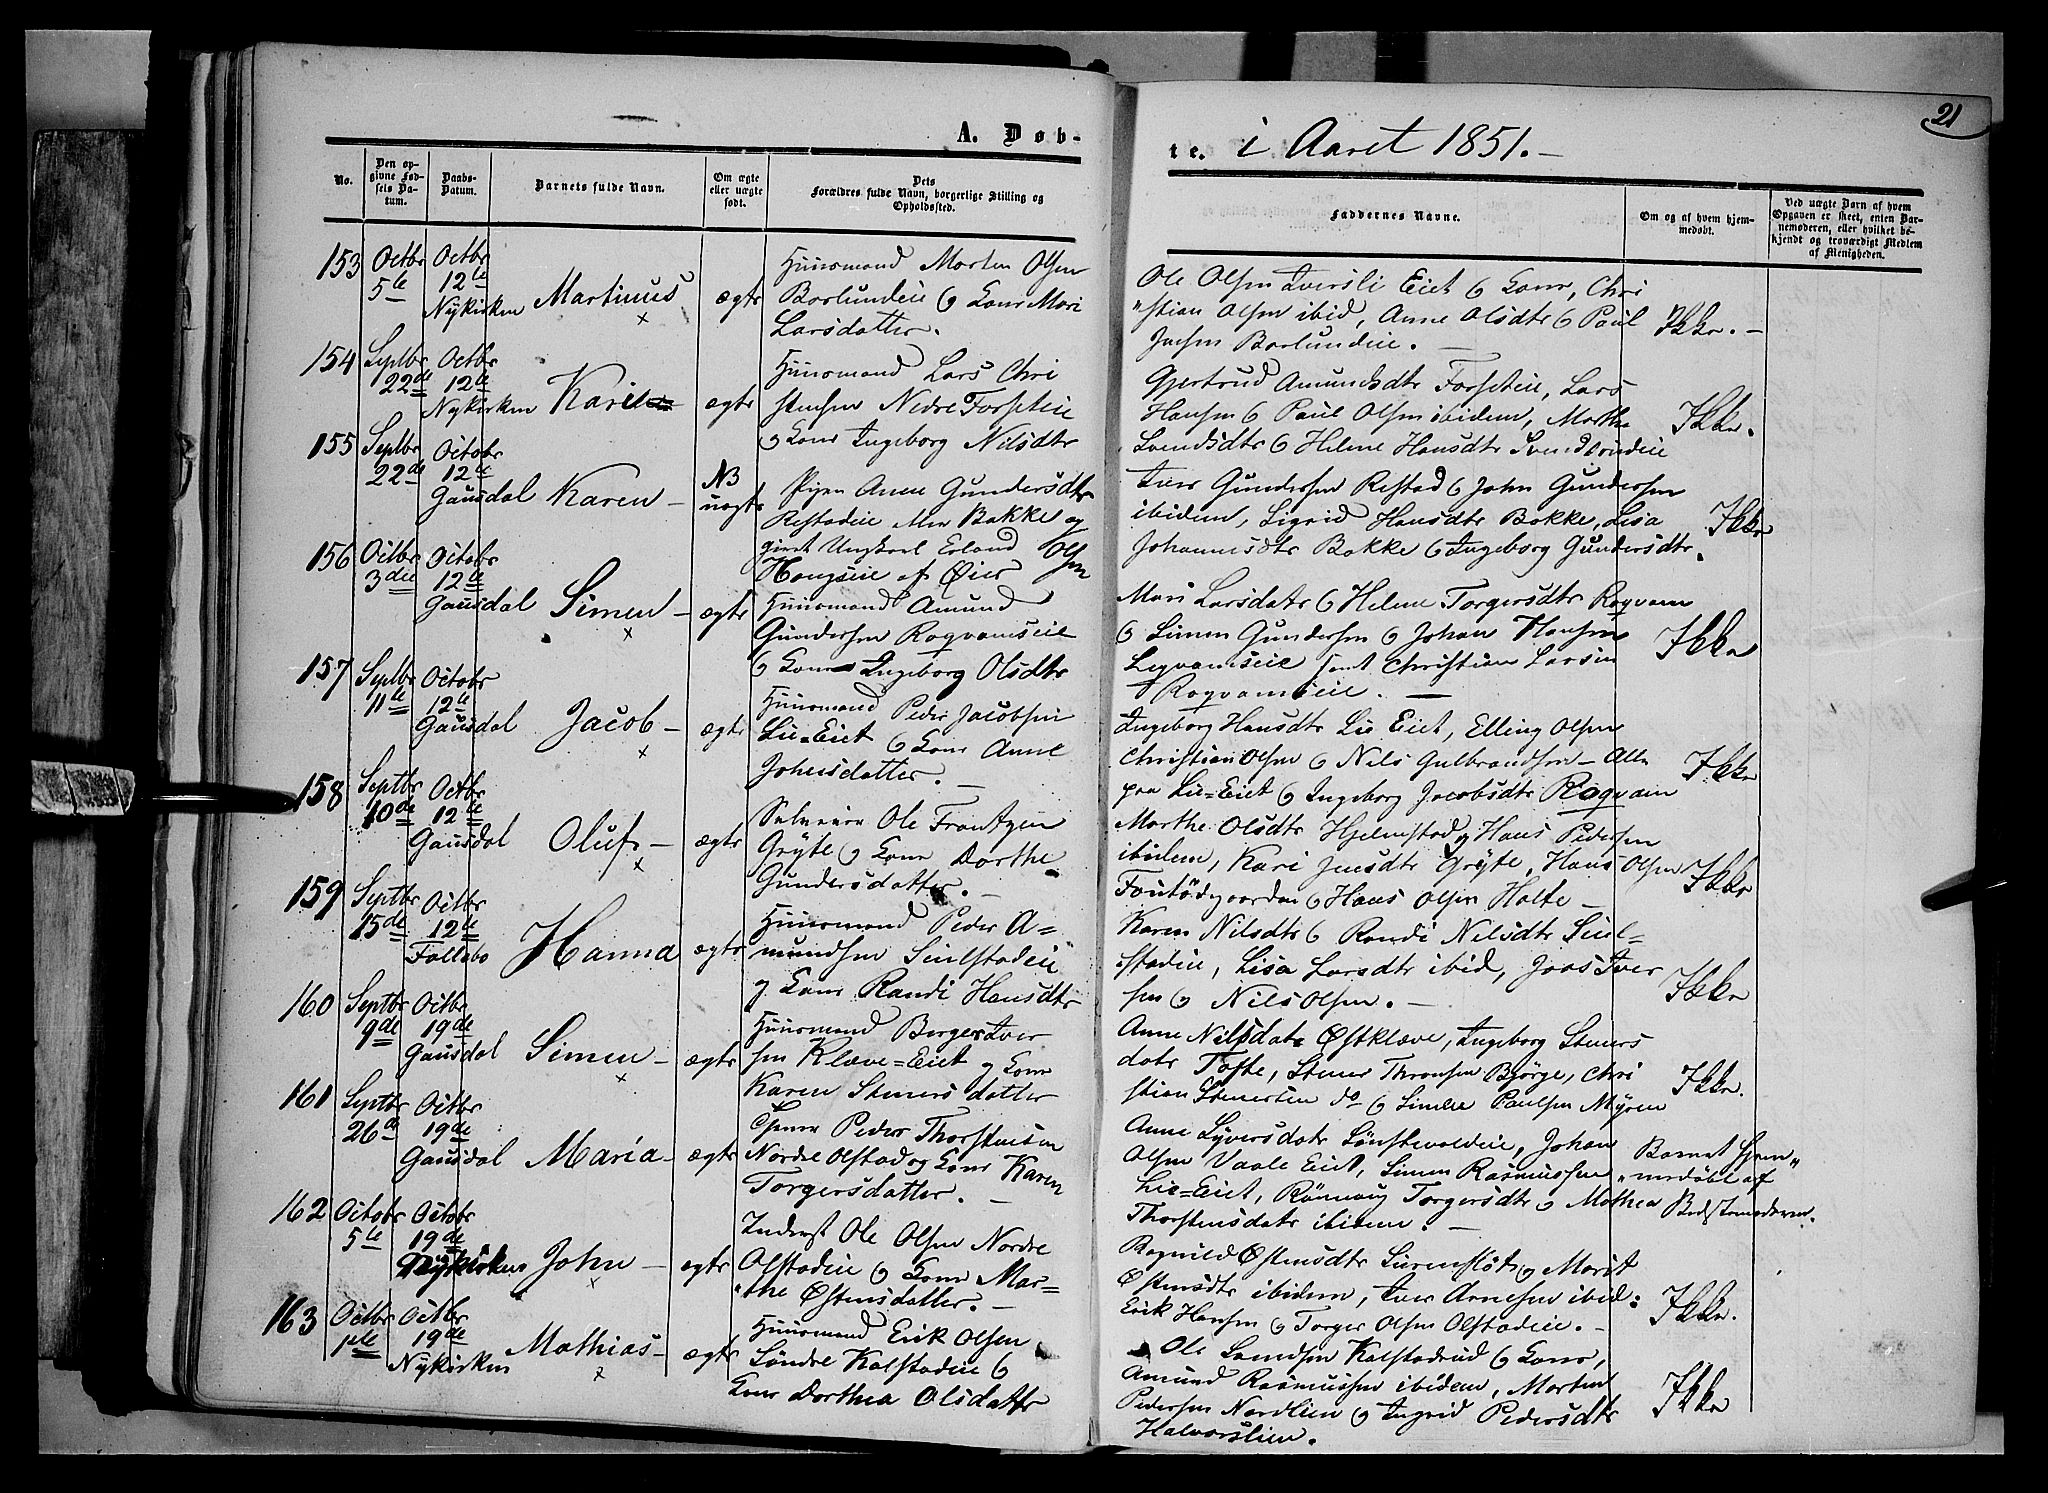 21
A. Døb-
te. i Aaret 1851.-
No.
Den op-
givne Fød-
sels Da-
tum.
Daabs-
Datum.
Barnets fulde Navn.
Om ægte
eller uægte
født.
Dets
Forældres fulde Navn, borgerlige Stilling og
Opholdssted.
Faddernes Navne.
Om og af hvem hjem-
medøbt.
Ved uægte Børn af hvem
Opgaven er skeet, enten Bar-
nemoderen, eller hvilket be-
kjendt og troværdigt Medlem
af Menigheden.
153
Octbr
5te
Octbr
12te
Nykirken
Martinus
ægte
Huusmand Morten Olsen
Borlundeie & Kone Mari
Larsdatter.
Ole Olsen Iversli Eiet & Kone, Chri
"stian Olsen ibid, Anne Olsdtr & Paul
Borlundeie.
Ikke.-
154
Septbr
22de
Octbr
12te
Nykirken
Kari
ægte
Huusmand Lars Chri
stensen Nedre Forseteie
& Kone Ingeborg Nilsdtr
Gjertrud Amundsdtr Forseteie, Lars
Hansen & Paul Olsen ibidem, Marthe
Svendsdtr & Helene Hansdtr
Ikke.
155
Septbr
22de
Octobr
12te
Gausdal
Karen -
NB
uægte
Pigen Anne Gundersdtr
Restadeie Bakke og
givt Ungkarl Erland Olsen
af Øier
Iver Gundersen Restad & John Gundersen
ibidem, Sigrid Hansdtr Bakke, Lisa
Johannesdtr Bakke & Ingeborg Gundersdtr.
Ikke
156
Octbr
3die
Octobr
12te
Gausdal
Simen -
ægte
Huusmand Amund
Gundersen Roqvamseie
& Kone Ingeborg Olsdtr
Mari Larsdatr & Helene Torgersdtr Roqvam
& Simen Gundersen & Johan Hansen
samt Christian Larsen
Roqvamseie. -
Ikke
157
Septbr
11te
Octobr
12te
Gausdal
Jacob -
ægte
Huusmand Peder Jacobsen
Lie=Eiet & Kone Anne
Johnsdatter. -
Ingeborg Hansdtr Lie Eiet, Elling Olsen
Christian Olsen & Nils Gulbrandsen - Alle
paa Lie=Eiet & Ingeborg Jacobsdtr Roqvam
Ikke
158
Septbr
10de
Octbr
12te
Gausdal
Oluf -
ægte
Selveier Ole Frantzen
Gryte & Kone Dorthe
Gundersdatter. -
Marthe Olsdtr Hjelmstad og Hans Pedersen
ibidem, Kari Jensdtr Gryte, Hans Olsen
& Hans Olsen Holte -
Ikke
159
Septbr
15de
Octbr
12te
Follebo
Hanna
ægte
Huusmand Peder A=
mundsen
og Kone Randi Hansdtr
Karen Nilsdtr & Randi Nilsdtr
stadeie, Lisa Larsdtr ibid, Iver
sen & Nils Olsen. -
Ikke
160
Septbr
9de
Octbr
19de
Gausdal
Simen -
ægte
Huusmand Borger Iver
sen Klæve=Eiet og Kone
Karen Stenersdatter
Anne Nilsdatr Østklæve, Ingeborg Steners
datr Tofte, Stener Thronsen Bjørge, Chri
stian Stenersen do & Simen Paulsen Myren
Ikke.
161
Septbr
26de
Octbr
19de
Gausdal
Maria -
ægte
Peder Thorstensen
Nordre Olstad og Kone Karen
Torgersdatter. -
Anne Syversdatr Johan
Olsen Vaale Eiet, Simen Rasmussen
Lie=Eiet, Rønnaug Torgersdtr & Mathea
Thorstensdatr ibidem. -
Barnet hjem"
"medøbt af
Bedstemoderen.
162
Octobr
5te
Octobr
19de
Nykirken
John -
ægte
Inderst Ole Olsen Nordre
Olstadeie & Kone Mar=
"the Østensdatter. -
Ragnild Østensdtr & Marit
Østensdtr ibidem, Iver Arnesen ibid:
Erik Hansen & Torger Olsen Olstadeie. -
Ikke.
163
Octbr
1ste
Octbr
19de
Nykirken
Mathias -
ægte
Huusmand Erik Olsen
Søndre Kalstadeie &
Kone Dorthea Olsdatter
Ole Kalstadrud & Kone,
Amund Rasmussen ibidem, Morten
Pedersen Nordlien & Ingrid Pedersdtr
Halvorslien.
Ikke